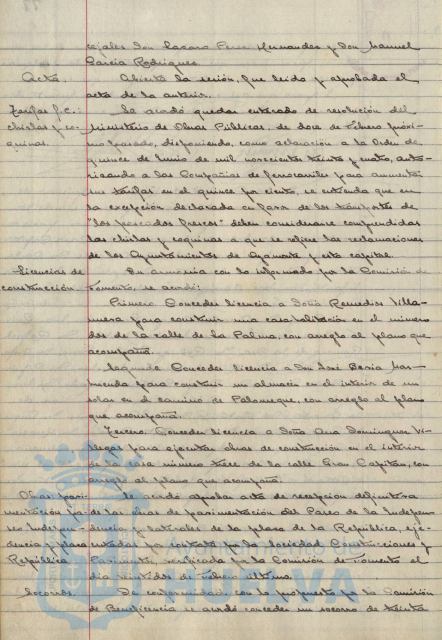 cejales Don Lazaro Perez Hernandez y Don Manuel
García Rodriguez.
Acta. Abierta la sesión, fue leido y aprobada el
acta de la anterior.
Tarifas f.c.: Se acordó quedar enterado de resolución del
chirlas y co- Ministerio de Obras Públicas, de doce de Febrero próxi-
quinas. mo pasado, disponiendo, como aclaración a la Orden de
quince de Junio de mil novecientos treinta y cuatro, auto-
rizando a las Compañias de ferrocarriles para aumentar
sus tarifas en el quince por ciento, se entienda que en
la excepción declarada en favor de los transportes de
"los pescados frescos" deben considerarse comprendidas
las chirlas y coquinas a que se refiere las reclamaciones
de los Ayuntamientos de Ayamonte y esta capital.
Licencias de En armonia con lo informado por la Comisión de
construcción. Fomento, se acordó:
Primero. Conceder licencia a Doña Remedios Villa-
nueva para construir una casa habitación en el número
dos de la calle de la Palma, con arreglo al plano que
acompaña.
Segundo. Conceder licencia a Don José
para construir un almacén en el interior de un
solar en el camino de Palomeque, con arreglo al plano
que acompaña.
Tercero. Conceder licencia a Doña Ana Dominguez Vi-
llegas para ejecutar obras de construcción en el interior
de la casa número trece de la calle Gran Capitán, con
arreglo al plano que acompaña.
Obras pavi- Se acordó aprobar acta de recepción definitiva
mentación Pa- de las obras de pavimentación del Paseo de la Indepen-
seo Indepen- dencia y laterales de la plaza de la República, eje-
dencia y plaza cutadas por la Sociedad Construcciones y
República Pavimentos, verificada por la Comisión de Fomento el
día veintidos de Febrero último.
Socorros. De conformidad con lo propuesto por la Comisión
de Beneficencia se acordó conceder un socorro de treinta
Ayuntamiento de
HUELVA